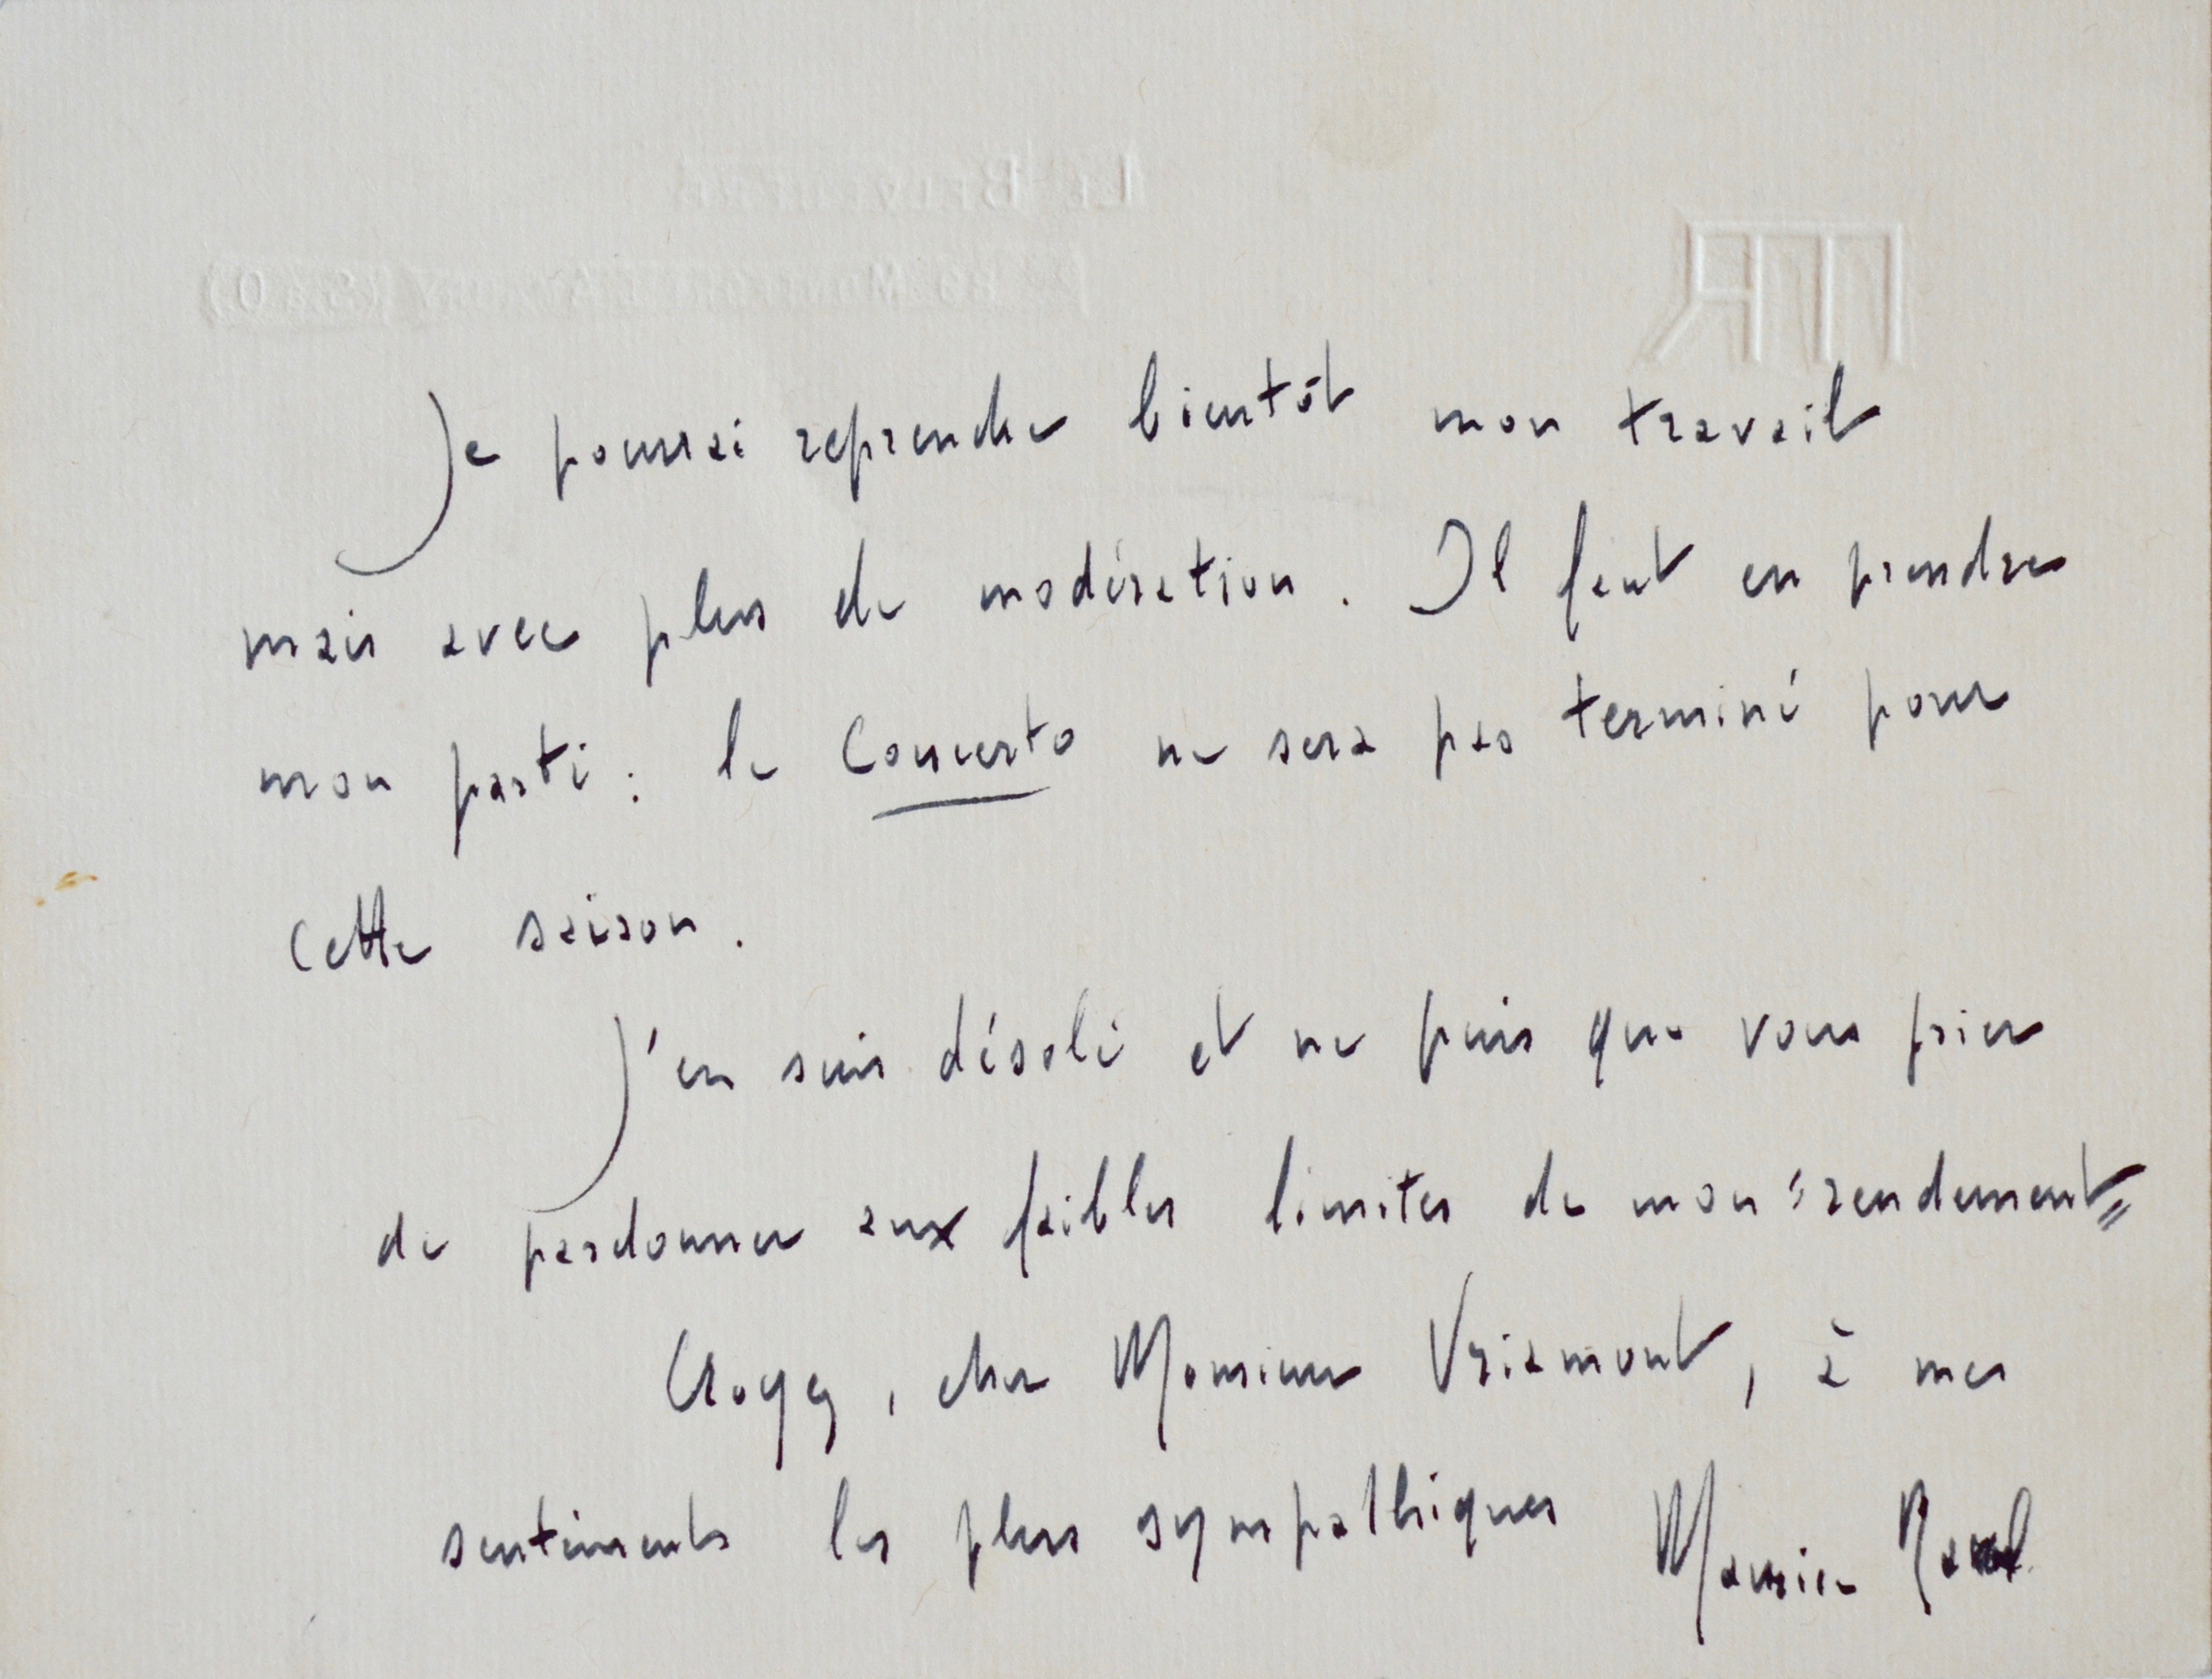 LE BELVÉDÈRE
MONTFORT L'AMAURY (S & O)
MR
Je pourrai reprendre bientôt mon travail
mais avec plus de modération. Il faut en prendre
mon parti : le Concerto ne sera pas terminé pour
cette saison.
J'en suis désolé et ne puis que vous prier
de pardonner aux faibles limites de mon "rendement"
Croyez, cher Monsieur Vriamont, à mes
sentiments les plus sympathiques Maurice Ravel